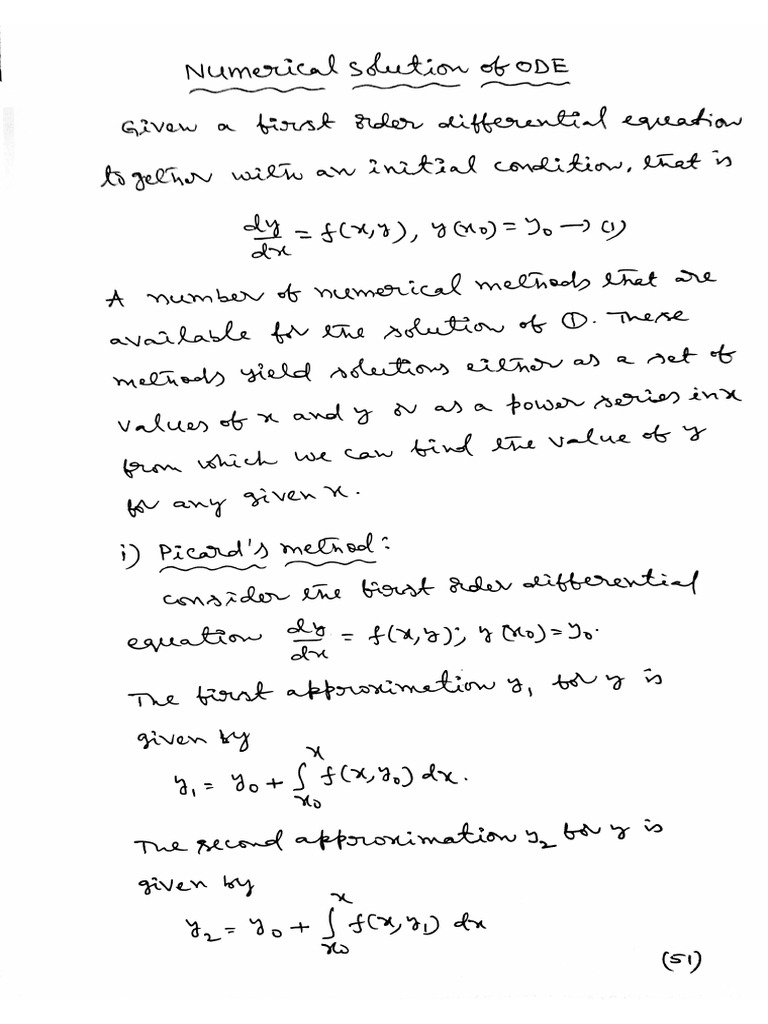 Numerical solution of ODE
Given a first order differential equation
together with an initial condition, that is
dy/dx = f(x,y), y(x0) = y0 → (1)
A number of numerical methods that are
available for the solution of ①. These
methods yield solutions either as a set of
values of x and y or as a power series in x
from which we can find the value of y
for any given x.
i) Picard's method:
consider the first order differential
equation dy/dx = f(x,y); y(x0) = y0.
The first approximation y₁ for y is
given by
y₁ = y0 + ∫_{x0}^{x} f(x,y0) dx.
The second approximation y₂ for y is
given by
y₂ = y0 + ∫_{x0}^{x} f(x,y₁) dx
(51)